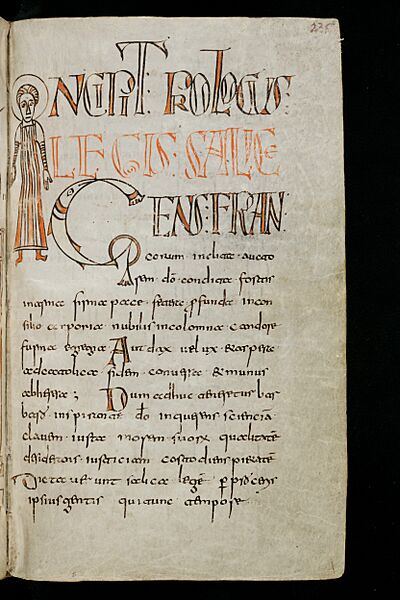 235
INCIPIT PROLOGUS
LEGIS SALICE
GENS FRAN
corum inclita auctore
dō condita fortis
in arma firma pace fetere profunda in con
silio corporia nobilis incolomna candore
forma egregia Audax velox et aspera
ad catolica fidem conversa et munus
ab heresa; Dum adhuc teneretur bar
bara inspirante dō inquerens sciencia
clavem iuxta morem suorum qualitatē
desiderans iusticiam custodiens pietatē
Dictaverunt salica lege per proceris
ipsius gentis qui tunc tempore